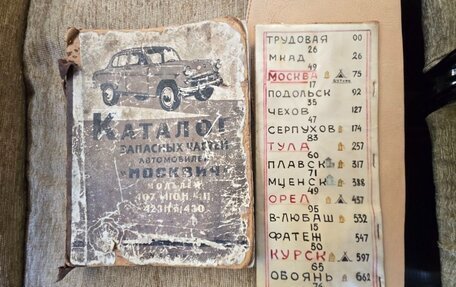 КАТАЛОГ
ЗАПАСНЫХ ЧАСТЕЙ
АВТОМОБИЛЕЙ
"МОСКВИЧ"
ТРУДОВАЯ 00
26
МКАД 26
49
МОСКВА 75
17
ПОДОЛЬСК 92
35
ЧЕХОВ 127
47
СЕРПУХОВ 174
83
ТУЛА 257
60
ПЛАВСК 317
71
МЦЕНСК 388
49
ОРЕЛ 437
95
В-ЛЮБАШ 532
15
ФАТЕЖ 547
50
КУРСК 597
65
ОБОЯНЬ 662
76